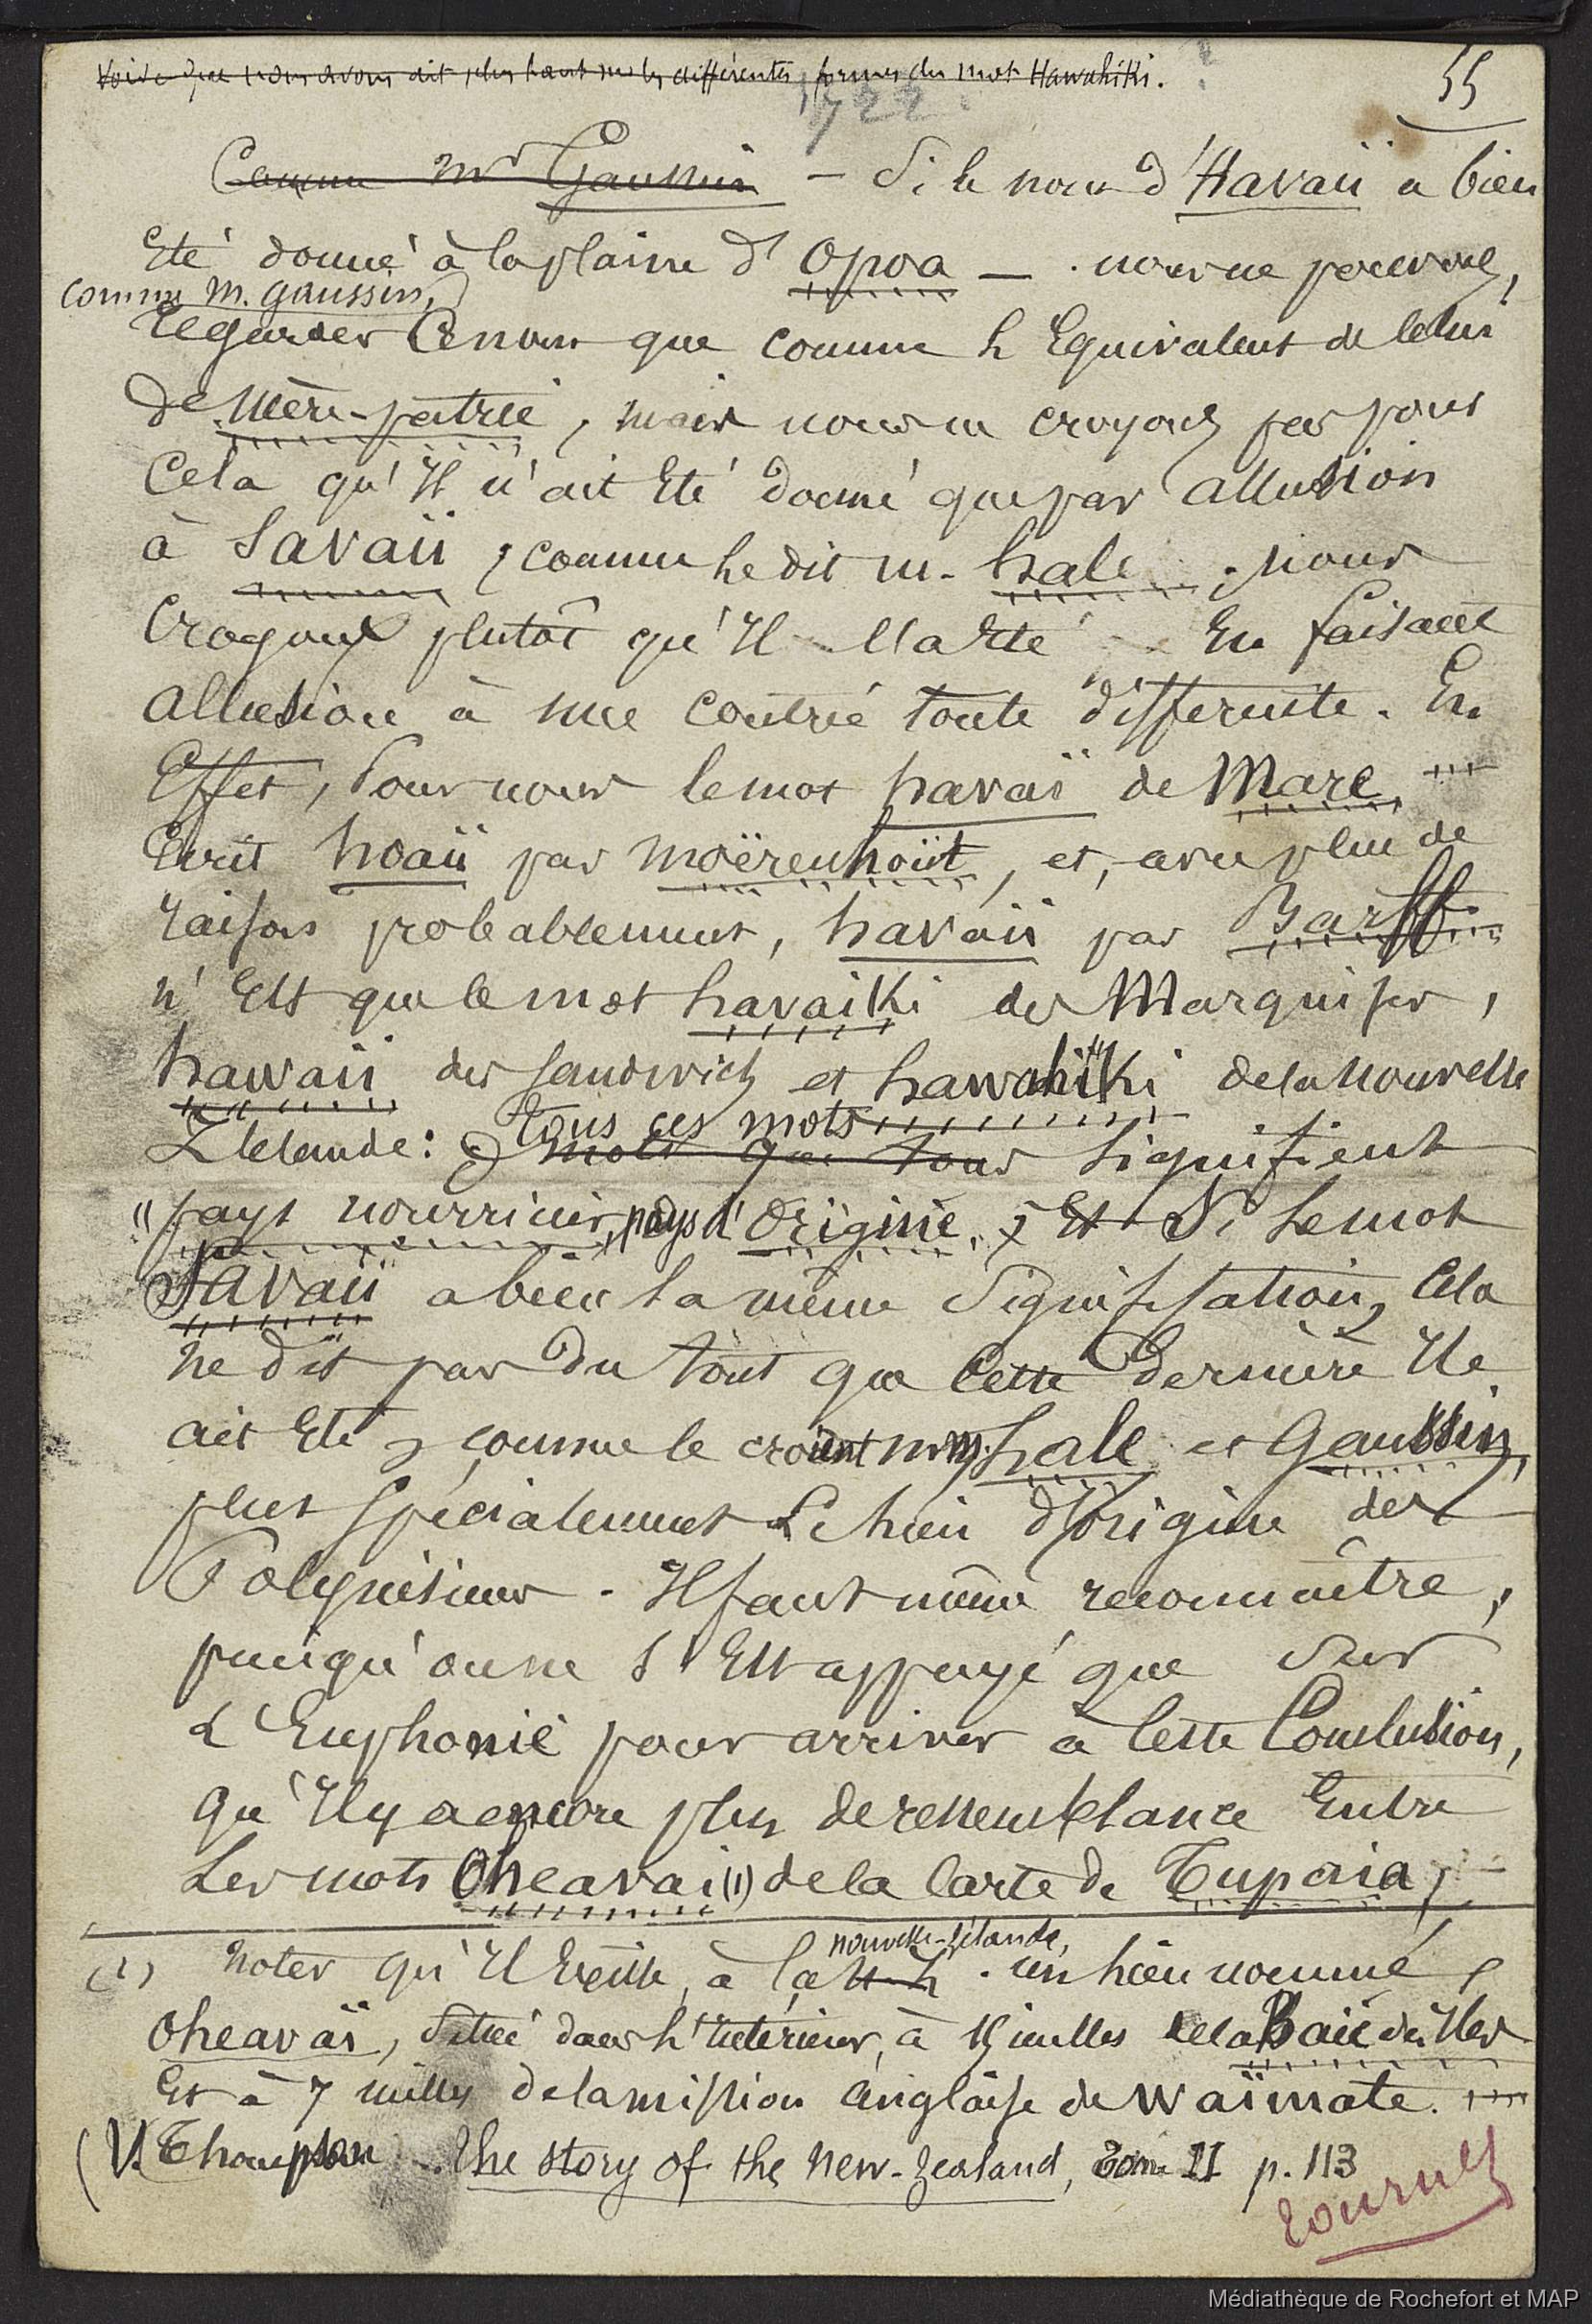 Voir ce que nous avons dit plus haut sur les différentes formes du mot Hawahiki.
55
722
Comme Mr Gaussin – Si le nom d'Havaïi a bien
Eté donné à la plaine d'Opoa — nous ne pouvons,
comme M. Gaussin,
regarder Ce nom que comme l'Equivalent de Celui
de mère-patrie, mais nous ne croyons pas pour
Cela qu'Il n'ait Eté donné que par allusion
à Savaïi, comme le dit M. hale ; nous
Croyons plutôt qu'Il l'a Eté En faisant
allusion à une contrée toute differente. En
Effet, Pour nous le mot havaï de Mare,
Ecrit hoaïi par moërenhoüt, et, avec plus de
raison probablement, havaïi par Barff
n'Est que le mot havaiki des Marquises,
hawaii des Sandwich et hawahiki de la Nouvelle
Zelande : tous ces mots
mots que tous signifient
"pays nourricier, pays d'origine. ; Et Si le mot
Savaïi a bien la même Signification, Cela
ne dit pas du tout que Cette Dernière Ile
ait Eté, comme le croient MM. hale et Gaussin,
plus Spécialement Le lieu d'Origine des
Polynésiens. Il faut même reconnaître,
puisqu'on ne s'Est appuyé que Sur
L'Euphonie pour arriver à Cette Conclusion,
qu'Il y a encore plus de ressemblance Entre
Les mots Oheavai (1) de la Carte de Tupaia,
nouvelle-Zélande,
(1) Noter qu'Il Existe, à la N. Z. un lieu nommé
Oheavaï, situé dans l'Intérieur, à 15 milles de la Baie des Iles
Et à 7 milles de la mission anglaise de Waïmate.
(V. Thompson – The story of the New-Zealand, Tome II p. 113
tournez
Médiathèque de Rochefort et MAP